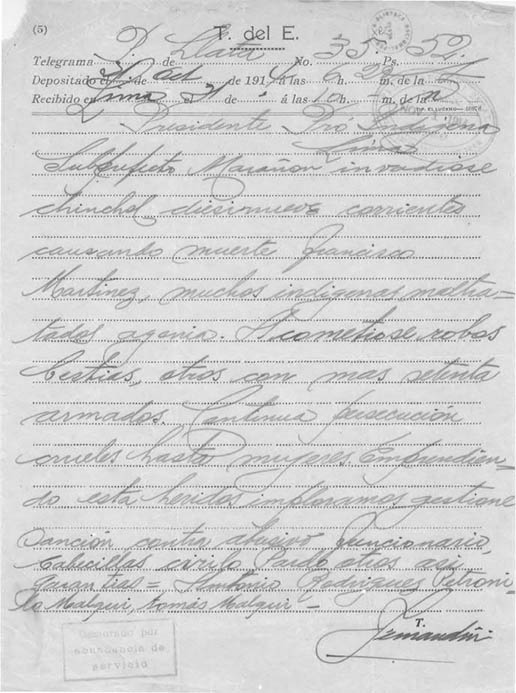 (5)
T. del E.
Telegrama P. de Llata No. 35 Ps. 52
Depositado el 31 de Oct de 191 á las 6 h. m. de la
Recibido en Lima el 31 de á las 10 h. m. de la n
Presidente Pro Indígena
Lima
Subprefecto Marañon invadiose
chinchol diesinueve corrientes
causando muerte Francisco
Martinez, muchos indigenas maltra=
tados agonia. Acometiose robos
bestias, otros con mas setenta
armados. Continua persecución
crueles hasta mujeres. Emprendien-
do esta heridos imploramos gestione
sanción contra abusivo funcionario,
Cabecillas cirilo Pardo otros asi
garantias = Antonio Rodriguez Petroni-
lo Malqui, tomás Malqui -
T.
Demorado por
abundancia de
servicio